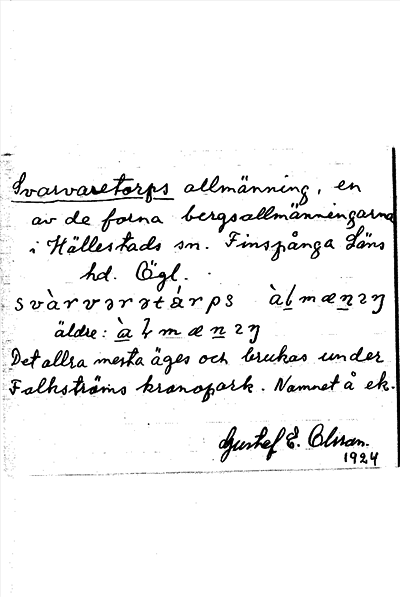 Svarvaretorps allmänning, en
av de forna bergsallmänningarna
i Hällestads sn. Finspånga Läns
hd. Ögl.
svàrvərətárps àlmænɜŋ
äldre: àlmænɜŋ
Det allra mesta äges och brukas under
Falkströms kronopark. Namnet å ek.
Gustaf E. Olsson.
1924